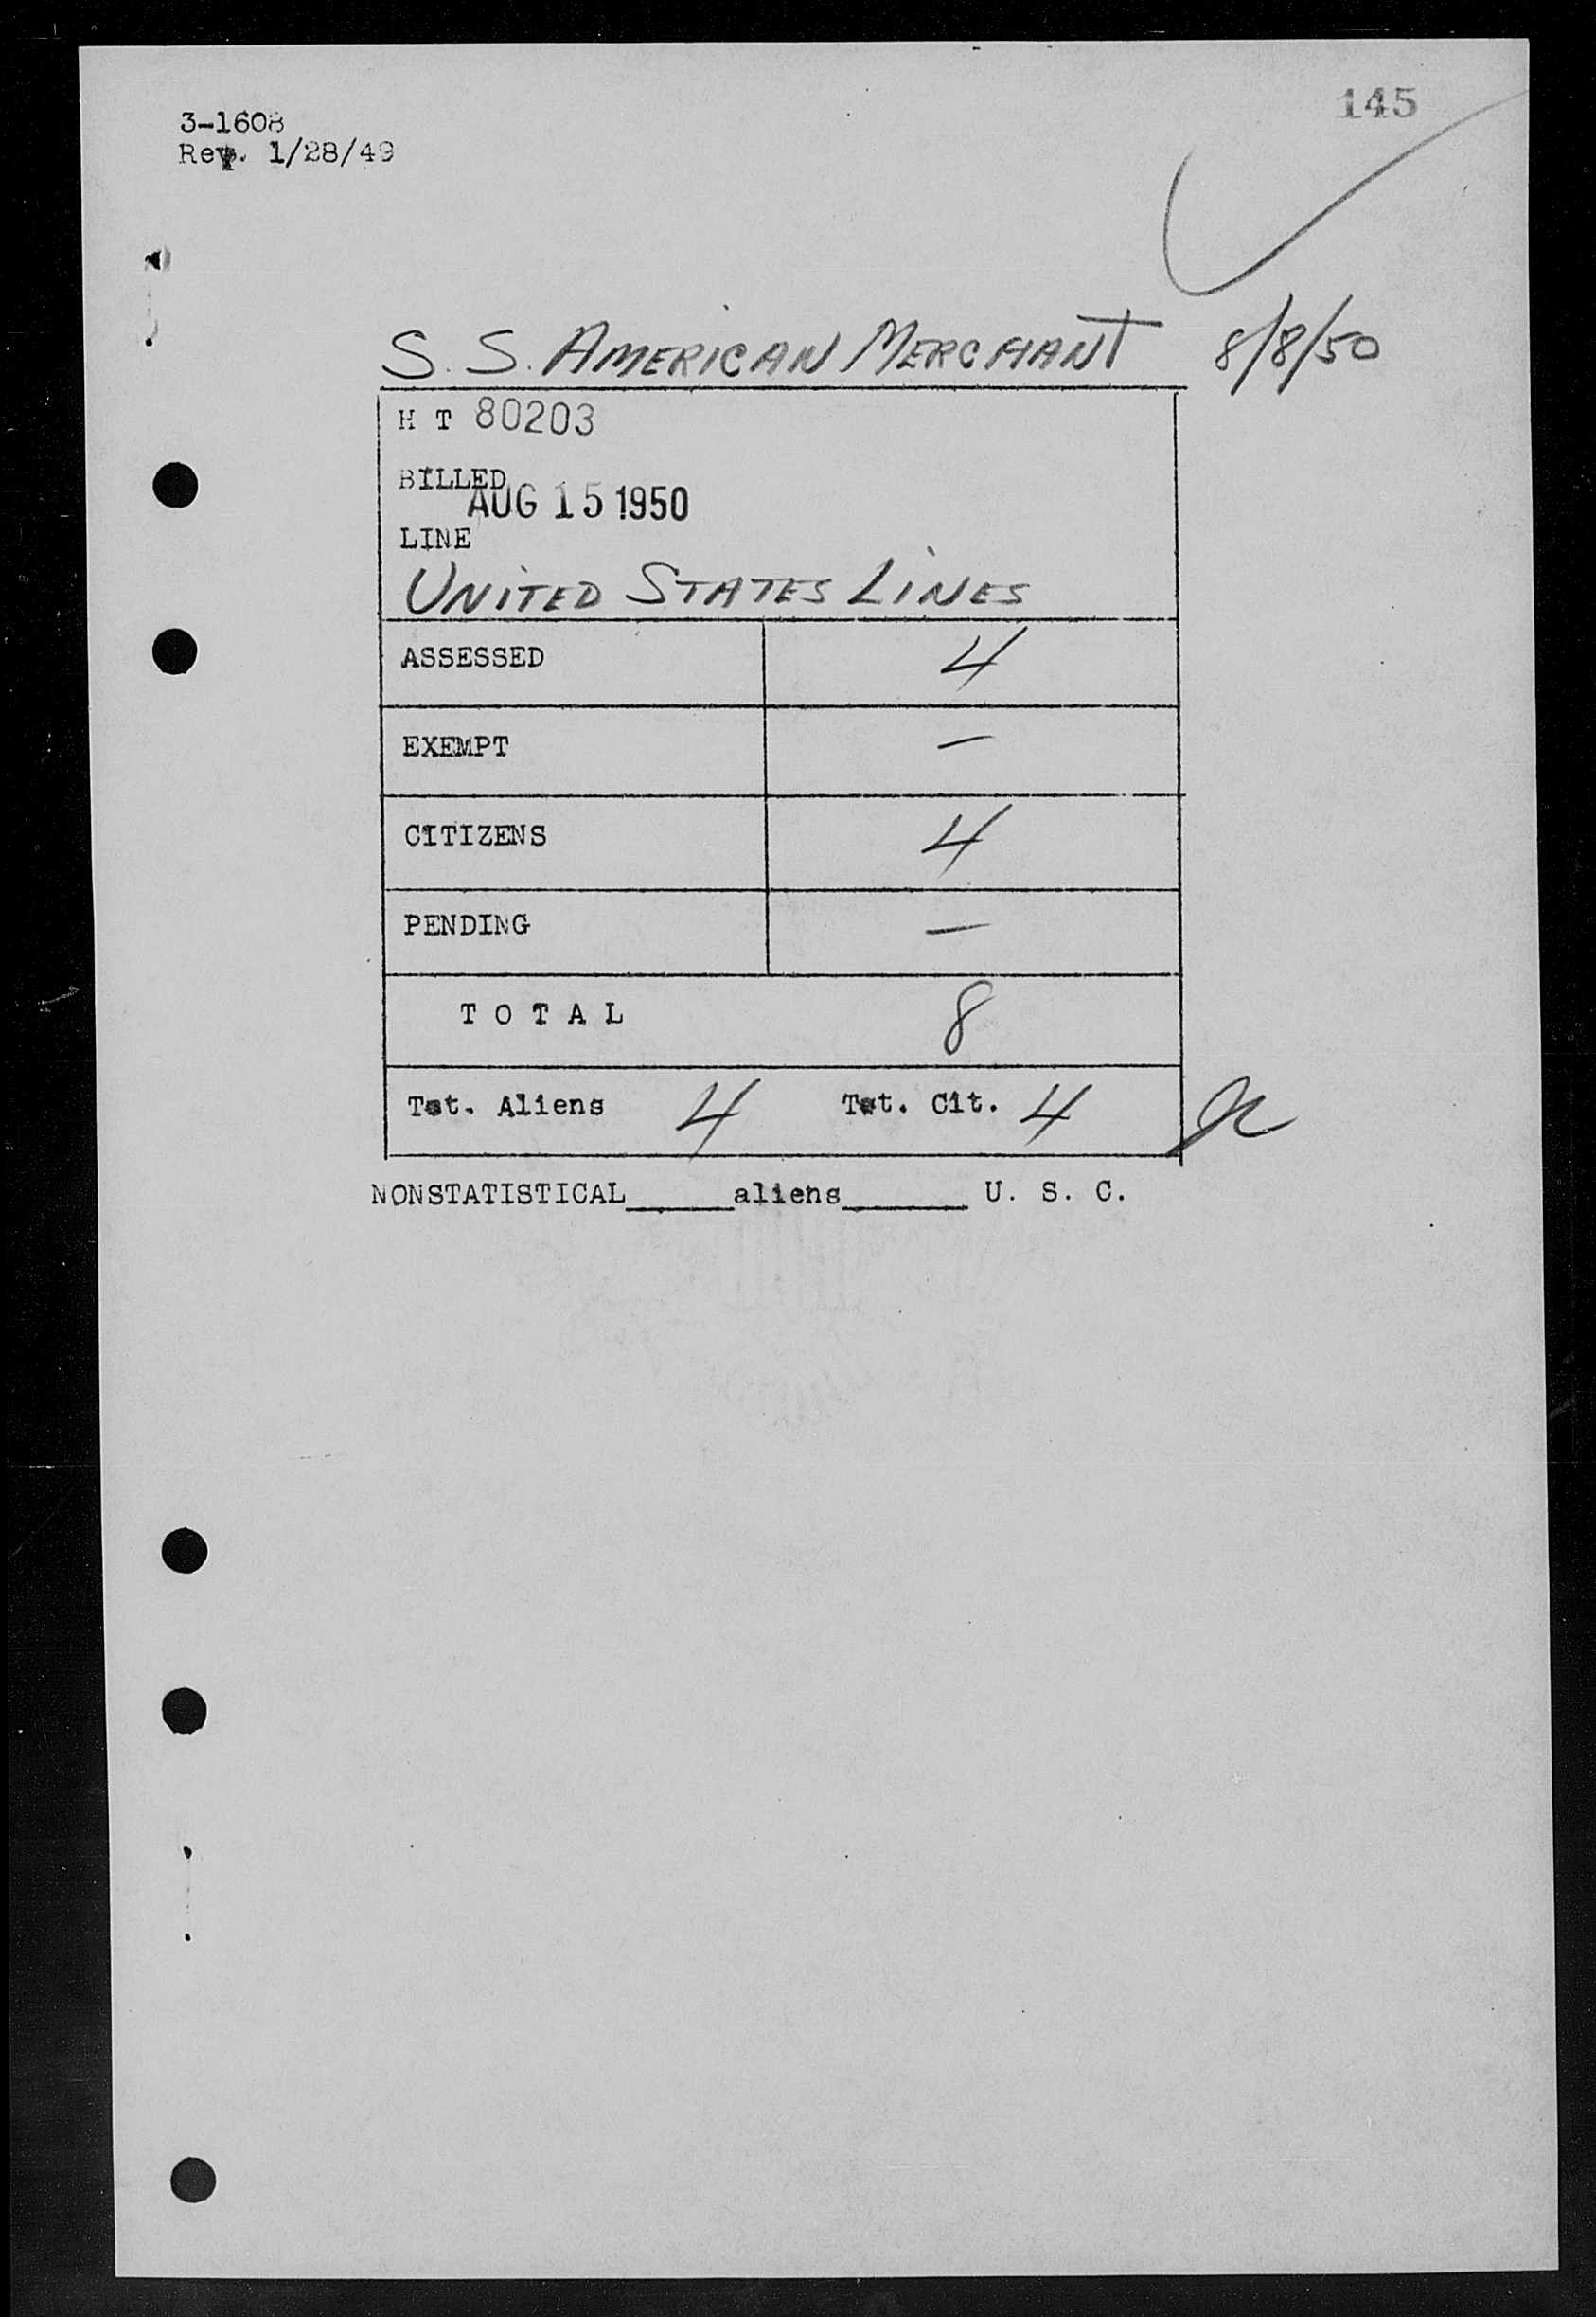 145
3-1608
Rev. 1/28/49
S.S. AMERICAN MERCHANT 8/8/50
H T 80203
BILLED
AUG 15 1950
LINE
UNITED STATES LINES
ASSESSED 4
EXEMPT —
CITIZENS 4
PENDING —
T O T A L 8
Tot. Aliens 4 Tot. Cit. 4
NONSTATISTICAL_____aliens______ U. S. C.